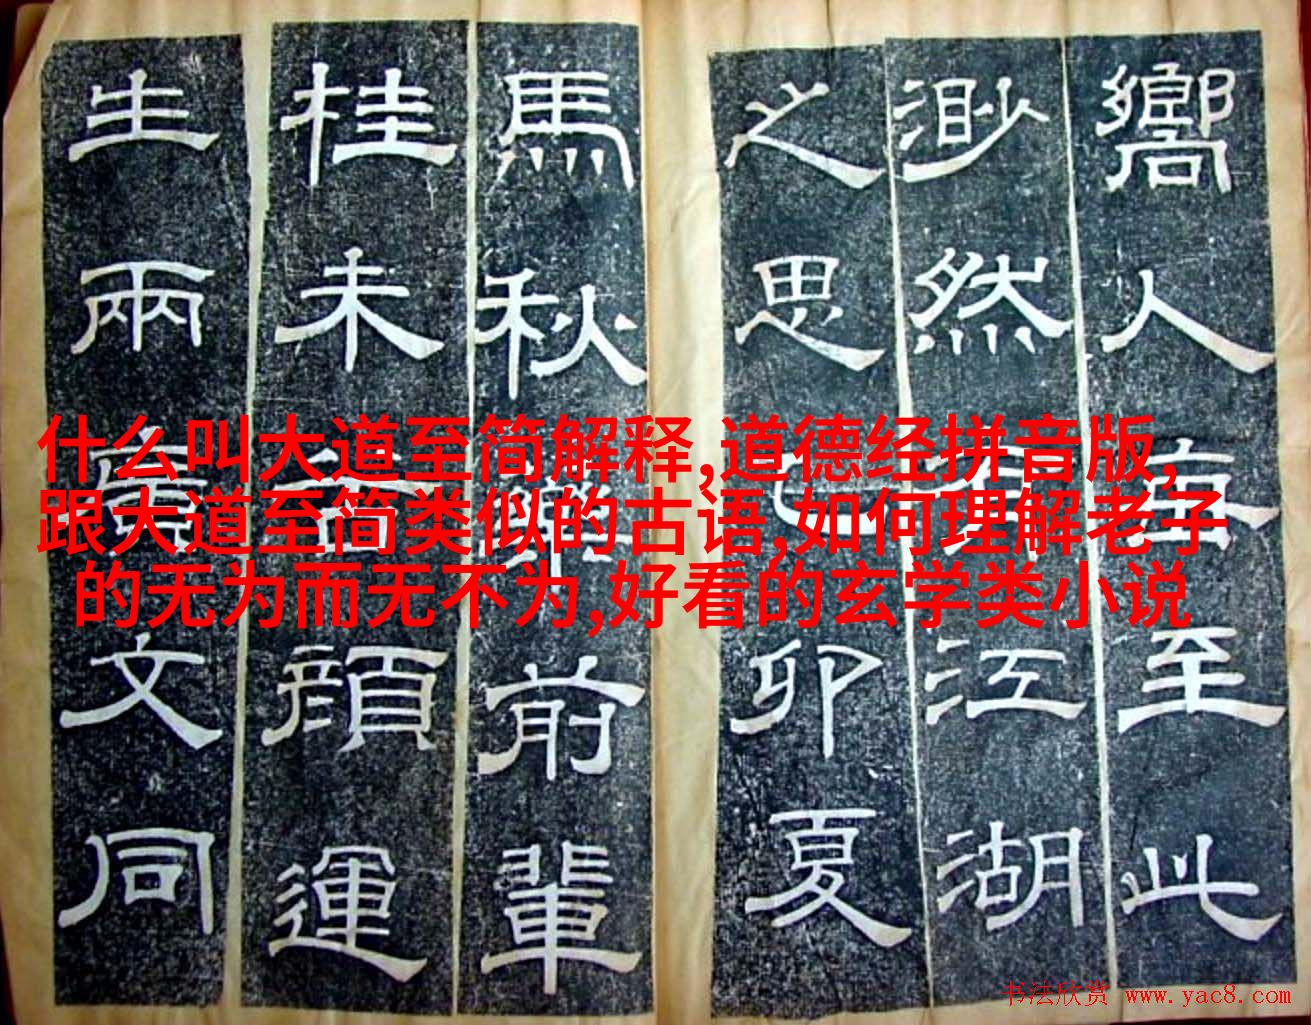 什么叫大道至简解释,道德经拼音版,
跟大道至简类似的古语,如何理解老子
的无为而无不为,好看的玄学类小说
嚮人亭至此
渺然有江湖
之思乙卯夏
馬秋藥前輩
桂未谷顔運
生兩廣文同
书法欣赏 www.yac8.com